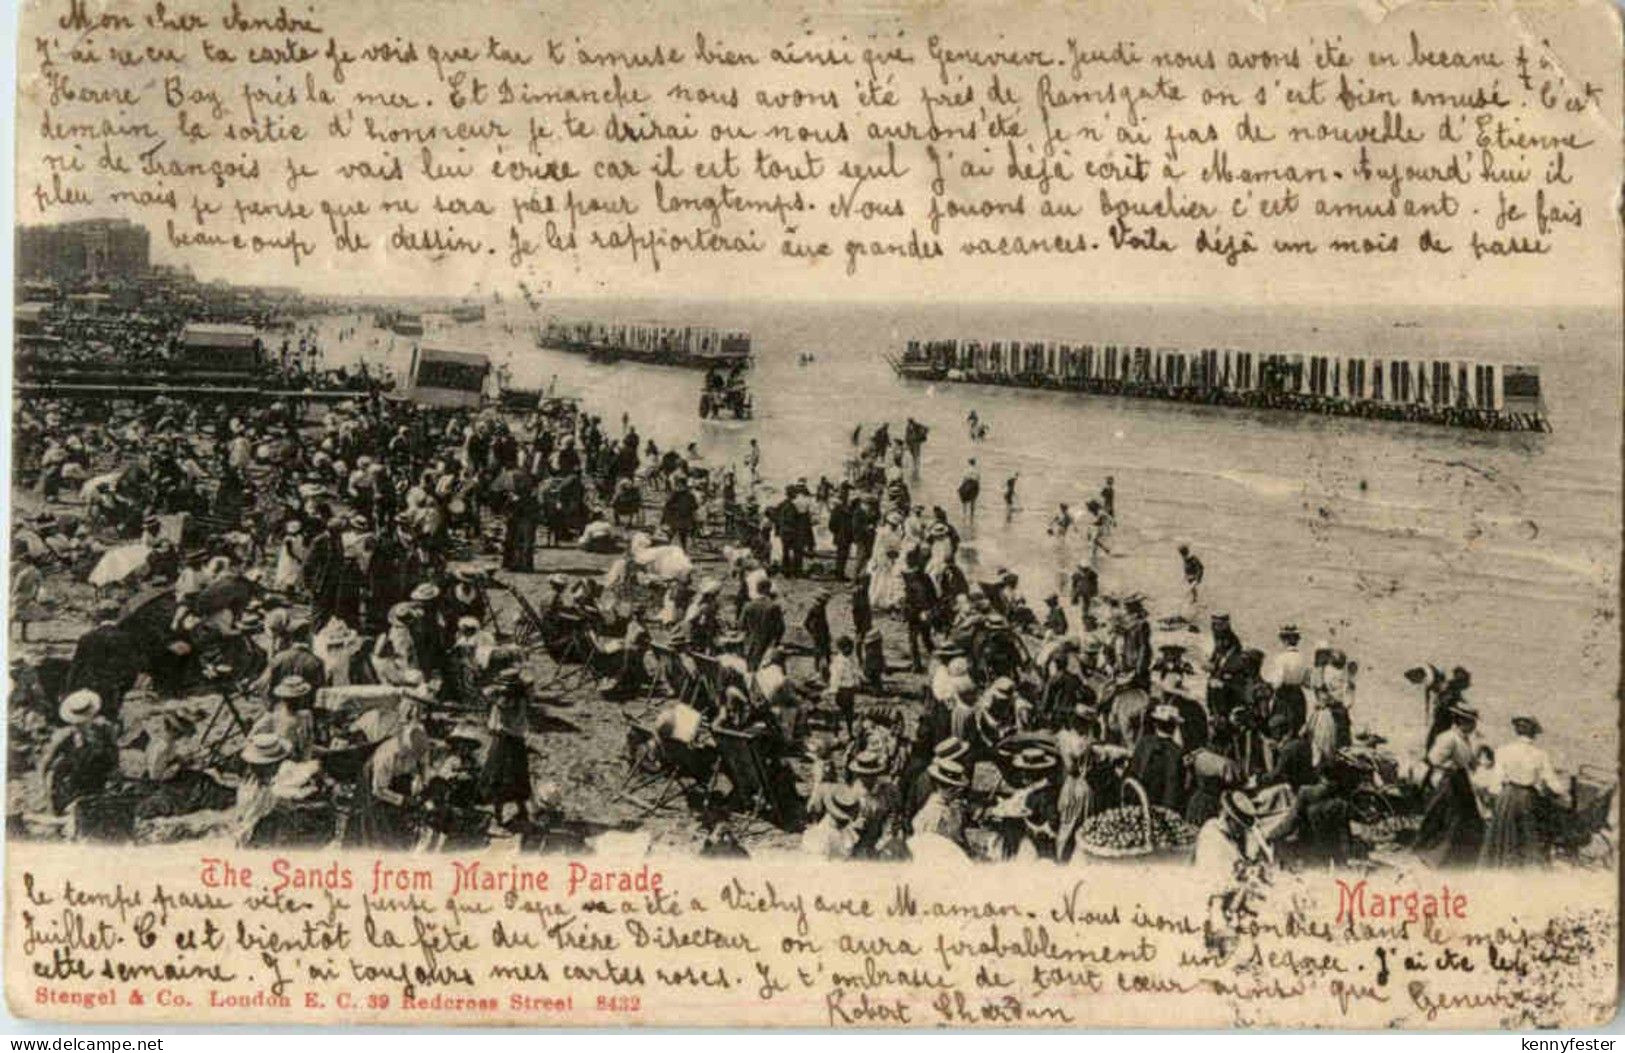 Mon cher André
J'ai reçu ta carte je vois que tu t'amuse bien ainsi que Geneviève. Jeudi nous avons été en becane à
Herne Bay près la mer. Et Dimanche nous avons été près de Ramsgate on s'est bien amusé. C'est
demain la sortie d'honneur je te drirai ou nous aurons été Je n'ai pas de nouvelle d'Etienne
ni de François je vais lui écrire car il est tout seul J'ai déjà ecrit à Maman. Aujourd'hui il
pleu mais je pense que ne sera pas pour longtemps. Nous jouons au bouclier c'est amusant. Je fais
beaucoup de dessin. Je les rapporterai aux grandes vacances. Voila déjà un mois de passé
The Sands from Marine Parade
Margate
le temps passe vite. Je pense que Papa a été a Vichy avec Maman. Nous irons a Londres dans le mois de
Juillet. C'est bientôt la fête du Frère Directeur on aura probablement un
cette semaine. J'ai toujours mes cartes roses. Je t'embrasse de tout cœur ainsi que Geneviève
Stengel & Co. London E. C. 39 Redcross Street 8432
Robert Chardun
kennyfester